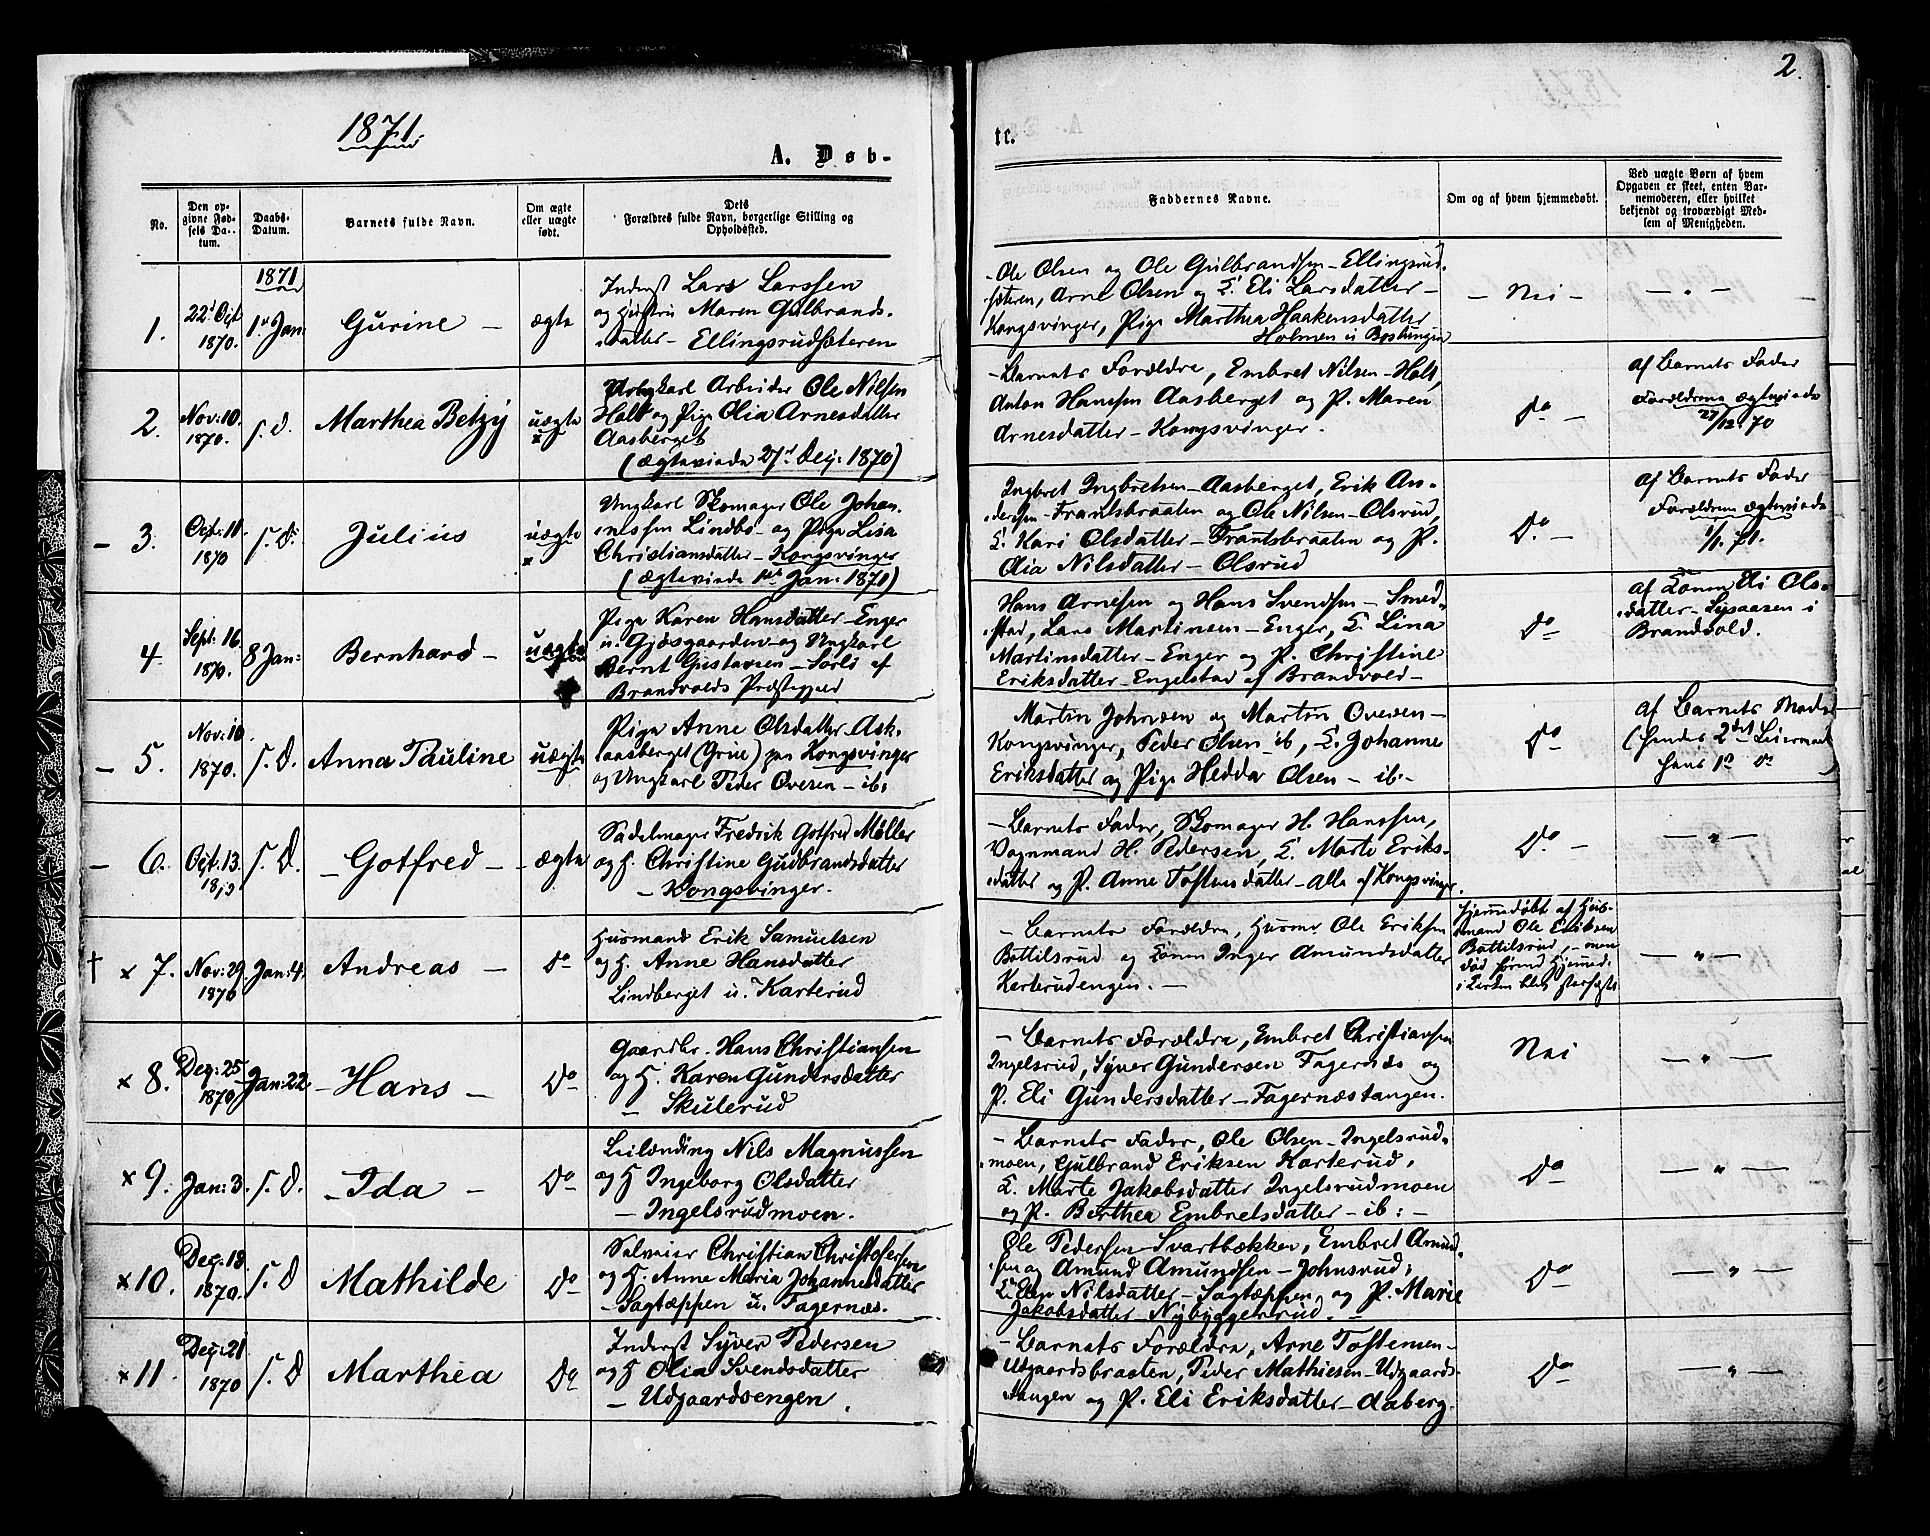 2.
1871.
A. Døb-
te.
No.
Den opgivne Fødsels Datum.
Daabs-Datum.
Barnets fulde Navn.
Om ægte eller uægte født.
Dets
Forældres fulde Navn, borgerlige Stilling og
Opholdssted.
Faddernes Navne.
Om og af hvem hjemmedøbt.
Ved uægte Børn af hvem
Opgaven er skeet, enten Bar-
nemoderen, eller hvilket
bekjendt og troværdigt Med-
lem af Menigheden.
1871
1. 22d Oct 1870. 1ste Jan: Gurine – ægte
Inderst Lars Larssen
og Hustru Maren Gulbrands-
datter – Ellingsrudsæteren
- Ole Olsen og Ole Gulbrandsen – Ellingsrud-
sæteren, Arne Olsen og E. Eli Larsdatter –
Kongsvinger, Pige Marthea Haakensdatter
Holmen u. Bostungen
– Nei –
— „ —
2. Nov: 10. 1870. s. D. Marthea Betzy uægte x
Ungkarl Arbeider Ole Nilsen
Holt og Pige Olia Arnesdatter
Aasberget
(ægteviede 27d Dez: 1870)
- Barnets Forældre, Embret Nilsen – Holt,
Anton Hansen Aasberget og P. Maren
Arnesdatter – Kongsvinger.
do –
af Barnets Fader
Forældrene ægteviede
27/12. 70
– 3. Oct: 11. 1870 s. D. Julius uægte x
Ungkarl Skomager Ole Johan-
nessen Lindbo – og Pige Lisa
Christiansdatter – Kongsvinger
(ægteviede 1ste Jan: 1871)
Ingbret Ingbretsen – Aasberget, Erik An-
dersen – Frantsbraaten og Ole Nilsen – Olsrud,
E. Kari Olsdatter – Frantsbraaten og P.
Olia Nilsdatter – Olsrud
Do –
af Barnets Fader
Forældrene ægteviede
1/1. 71.
4. Sept: 16. 1870. 8 Jan: Bernhard – uægte
Pige Karen Hansdatter – Enger
u. Gjøsgaarden – og Ungkarl
Bernt Gustavsen – Sorli af
Brandvolds Præstegjeld
Hans Arnesen og Hans Svendsen – Smed-
stad, Lars Martinsen – Enger, E. Lina
Martinsdatter – Enger og P. Christine
Eriksdatter – Engelstad af Brandvold –
do
af Konen Eli Ols-
datter – Lysaasen i
Brandvold.
– 5. Nov: 10 1870. s. D. Anna Pauline uægte
Pige Anne Olsdatter Ask-
aasberget (Grue) paa Kongsvinger
og Ungkarl Peder Ovesen – ib:
Martin Johnsen og Martin Ovesen –
Kongsvinger, Peder Olsen – ib, E. Johanne
Eriksdatter og Pige Hedda Olsen – ib. –
do
af Barnets Moder
(hendes 2det Leiermaal
hans 1ste do)
– 6. Oct: 13. 1870 s. D. – Gotfred – – ægte
Sadelmager Fredrik Gotfred Møller
og H. Christine Gudbrandsdatter
– Kongsvinger.
- Barnets Fader, Skomager H. Hanssen,
Vognmand H. Pedersen, E. Marte Eriks-
datter og P. Anne Tostensdatter – Alle af Kongsvinger.
Do –
— „ —
† x 7. Nov: 29. 1870 Jan: 4. Andreas – do
Husmand Erik Samuelsen
og H. Anne Hansdatter
Lindberget u. Karterud
– Barnets Forældre, Husmd Ole Eriksen
Bottilsrud og Konen Inger Amundsdatter
Karterudengen. –
Hjemmedøbt af Hus-
mand Ole Eriksen
Bottilsrud, – men
død førend Hjemmed:
i Kirken blev stadfæstet
— „ —
x 8. Dez: 25 1870 Jan: 22 – Hans – Do
Gaardbr. Hans Christiansen
og H. Karen Gundersdatter
– Skulerud
- Barnets Forældre, Embret Christiansen
Ingelsrud, Syver Gundersen Fagernæs og
P. Eli Gundersdatter – Fagernæstangen.
Nei
— „ —
x 9. Jan: 3. s. D. – Ida – Do
Leilænding Nils Magnussen
og H Ingeborg Olsdatter
– Ingelsrudmoen.
- Barnets Fader, Ole Olsen – Ingelsrud-
moen, Gulbrand Eriksen Karterud,
E. Marte Jakobsdatter Ingelsrudmoen
og P. Berthea Embretsdatter – ib: –
do
— „ —
x 10. Dez: 18 1870. s. D Mathilde Do
Selveier Christian Christofersen
og H. Anne Maria Johannesdatter
– Sagtæppen u. Fagernæs.
Ole Pedersen – Svartbækken, Embret Amund-
sen og Amund Amundsen – Johnsrud,
E. Elen Nilsdatter – Sagtæppen, og P. Marie
Jakobsdatter – Nybyggererud. –
do
— „ —
x 11. Dez: 21 1870 s. D Marthea Do
Inderst Syver Pedersen
og H Olia Svendsdatter
– Udgaardsengen.
- Barnets Forældre, Arne Tostensen –
Udgaardsbraaten, Peder Mathisen – Udgaards-
tangen og P. Eli Eriksdatter – Aaberg.
Do
— „ —